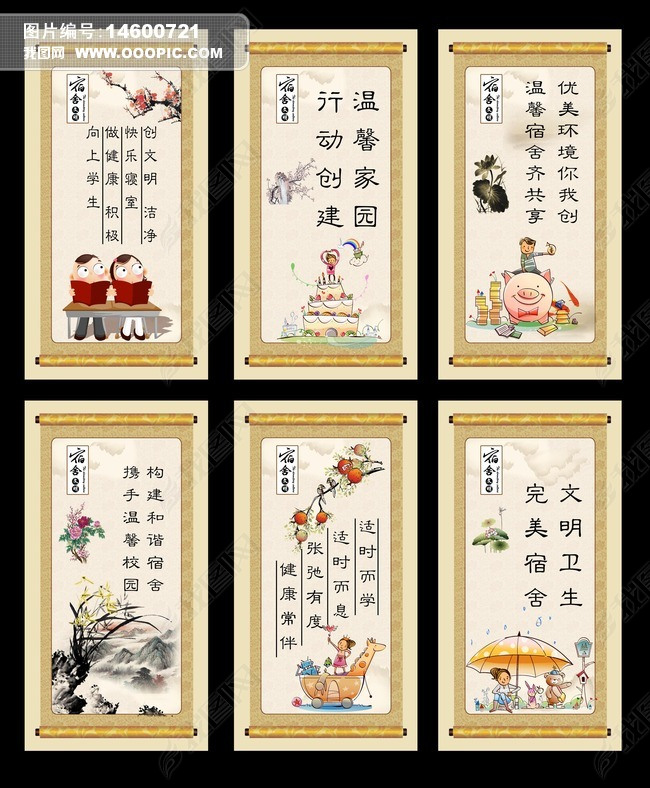 图片编号:14600721
我图网 WWW.OOOPIC.COM
宿舍文明
创文明 洁净
快乐寝室
做健康 积极
向上学生
宿舍文明
温馨家园
行动创建
宿舍文明
优美环境你我创
温馨宿舍齐共享
宿舍文明
构建和谐宿舍
携手温馨校园
宿舍文明
适时而学
适时而息
张弛有度
健康常伴
宿舍文明
文明卫生
完美宿舍